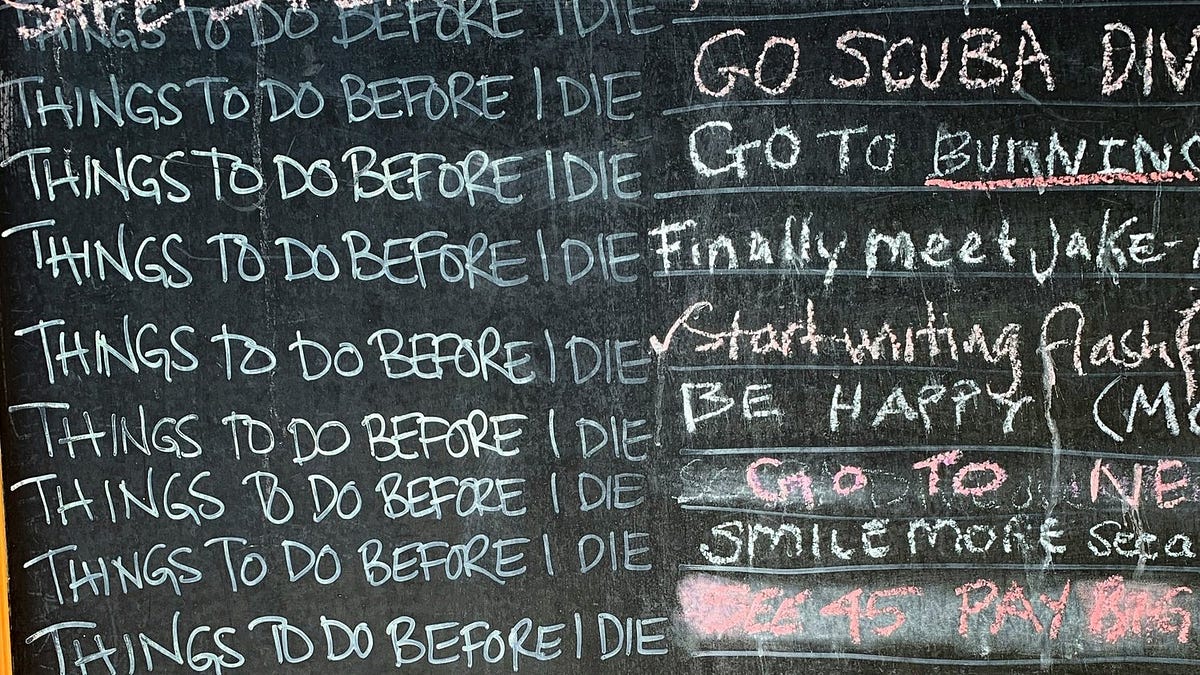 THINGS TO DO BEFORE I DIE
THINGS TO DO BEFORE I DIE GO SCUBA DIV
THINGS TO DO BEFORE I DIE GO TO BURNING
THINGS TO DO BEFORE I DIE Finally meet Jake-
THINGS TO DO BEFORE I DIE Start writing flash
THINGS TO DO BEFORE I DIE BE HAPPY (M
THINGS TO DO BEFORE I DIE GO TO NE
THINGS TO DO BEFORE I DIE SMILE MORE Seta
THINGS TO DO BEFORE I DIE SEE 45 PAY BIG